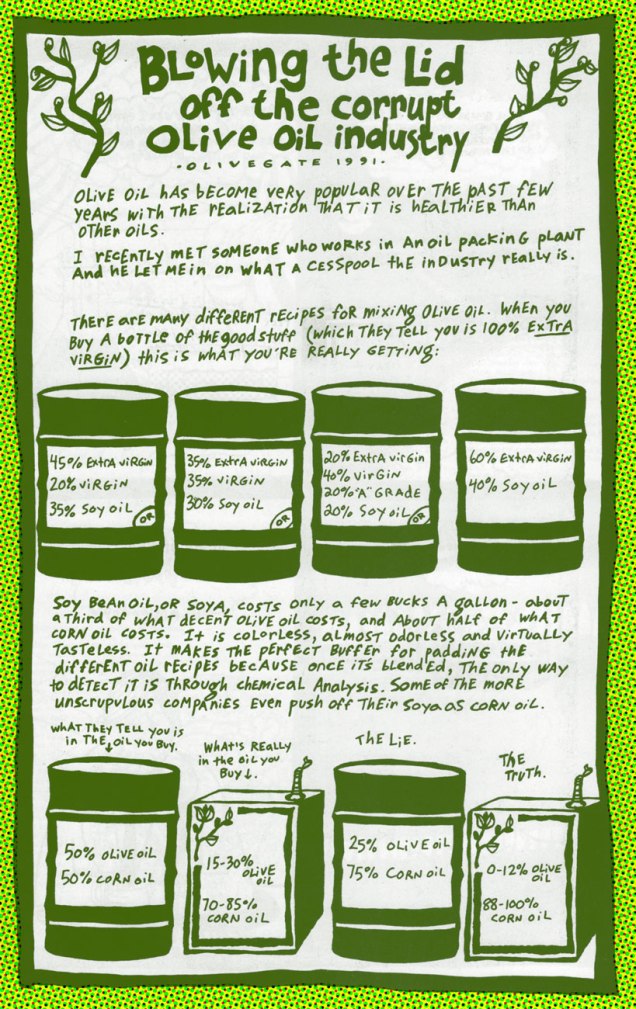 Blowing the Lid
off the corrupt
Olive Oil industry
·OLIVEGATE 1991·
Olive oil has become very popular over the past few
years with the realization that it is healthier than
other oils.
I recently met someone who works in an oil packing plant
and he let me in on what a cesspool the industry really is.
There are many different recipes for mixing olive oil. When you
buy a bottle of the good stuff (which they tell you is 100% Extra
Virgin) this is what you're really getting:
45% Extra virgin
20% virgin
35% Soy oil
OR
35% Extra virgin
35% virgin
30% Soy oil
OR
20% Extra virgin
40% virgin
20% "A" GRADE
20% Soy oil
OR
60% Extra virgin
40% Soy oil
Soy bean oil, or soya, costs only a few bucks a gallon - about
a third of what decent olive oil costs, and about half of what
corn oil costs. It is colorless, almost odorless and virtually
tasteless. It makes the perfect buffer for padding the
different oil recipes because once it's blended, the only way
to detect it is through chemical analysis. Some of the more
unscrupulous companies even push off their soya as corn oil.
what they tell you is
in the oil you buy.
50% olive oil
50% corn oil
What's really
in the oil you
buy.
15-30%
olive
oil
70-85%
corn oil
The Lie.
25% olive oil
75% corn oil
The
Truth.
0-12% olive
oil
88-100%
corn oil